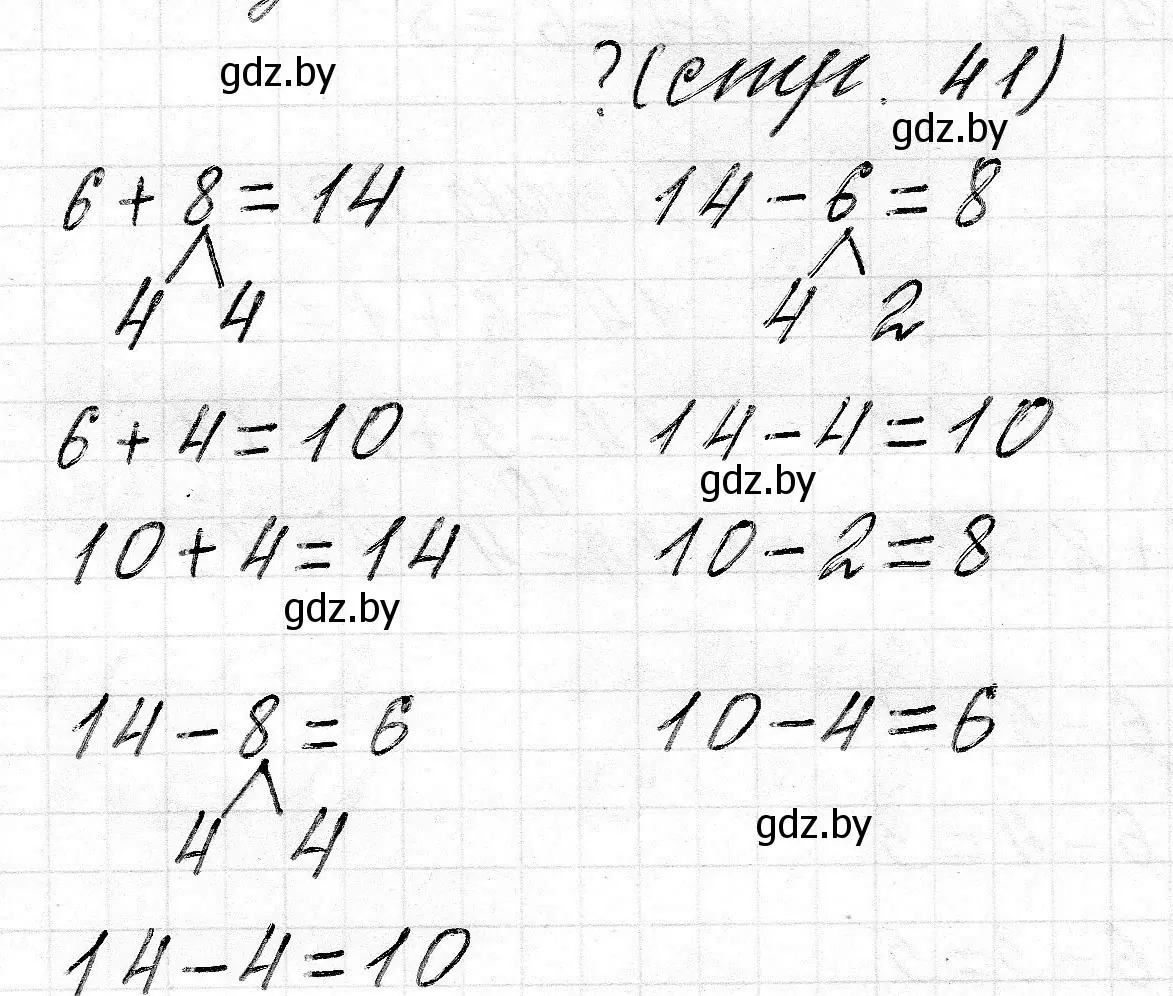 gdz.by
?(стр. 41)
gdz.by
6 + 8 = 14
14 - 6 = 8
4 4
4 2
6 + 4 = 10
14 - 4 = 10
gdz.by
10 + 4 = 14
10 - 2 = 8
gdz.by
14 - 8 = 6
10 - 4 = 6
4 4
gdz.by
14 - 4 = 10